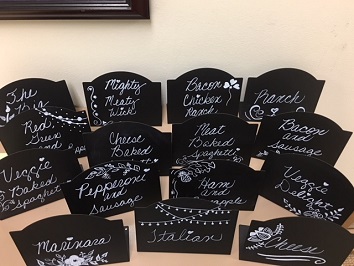 The
Mighty
Meaty
Bacon
Chicken
Ranch
Ranch
Red,
Green
and
Cheese
Baked
Meat
Baked
Spaghetti
Bacon
and
Sausage
Veggie
Baked
Spaghetti
Pepperoni
and
Sausage
Ham
and
Veggie
Delight
Marinara
Italian
Cheese